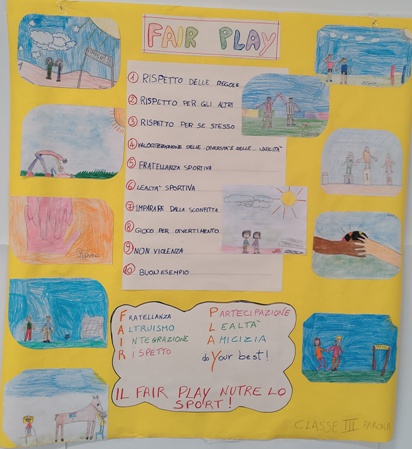 FAIR PLAY
1 RISPETTO DELLE REGOLE
2 RISPETTO PER GLI ALTRI
3 RISPETTO PER SE STESSO
4 VALORIZZAZIONE DELLE DIVERSITÀ DELLE... LEALTÀ
5 FRATELLANZA SPORTIVA
6 LEALTÀ SPORTIVA
7 IMPARARE DALLA SCONFITTA
8 GIOCO PER DIVERTIMENTO
9 NON VIOLENZA
10 BUON ESEMPIO
FRATELLANZA
ALTRUISMO
INTEGRAZIONE
RISPETTO
PARTECIPAZIONE
LEALTA'
AMICIZIA
do Your best!
IL FAIR PLAY NUTRE LO
SPORT!
CLASSE III PARONA